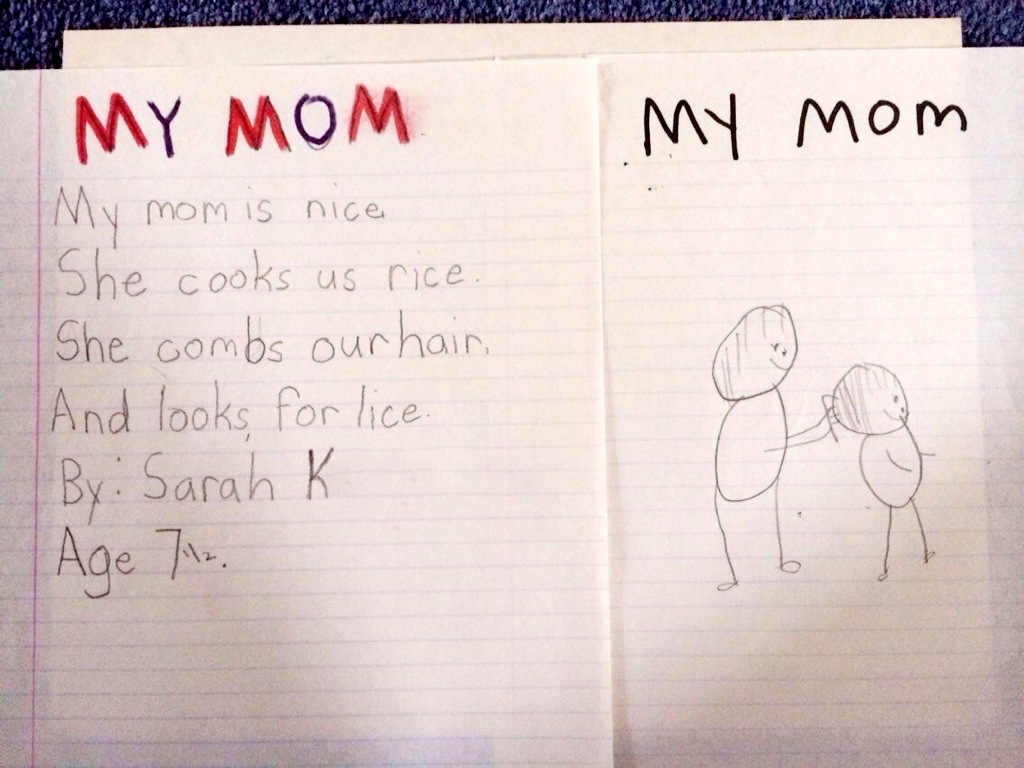 MY MOM
My mom is nice
She cooks us rice.
She combs our hair.
And looks for lice.
By: Sarah K
Age 7 1/2.
My Mom